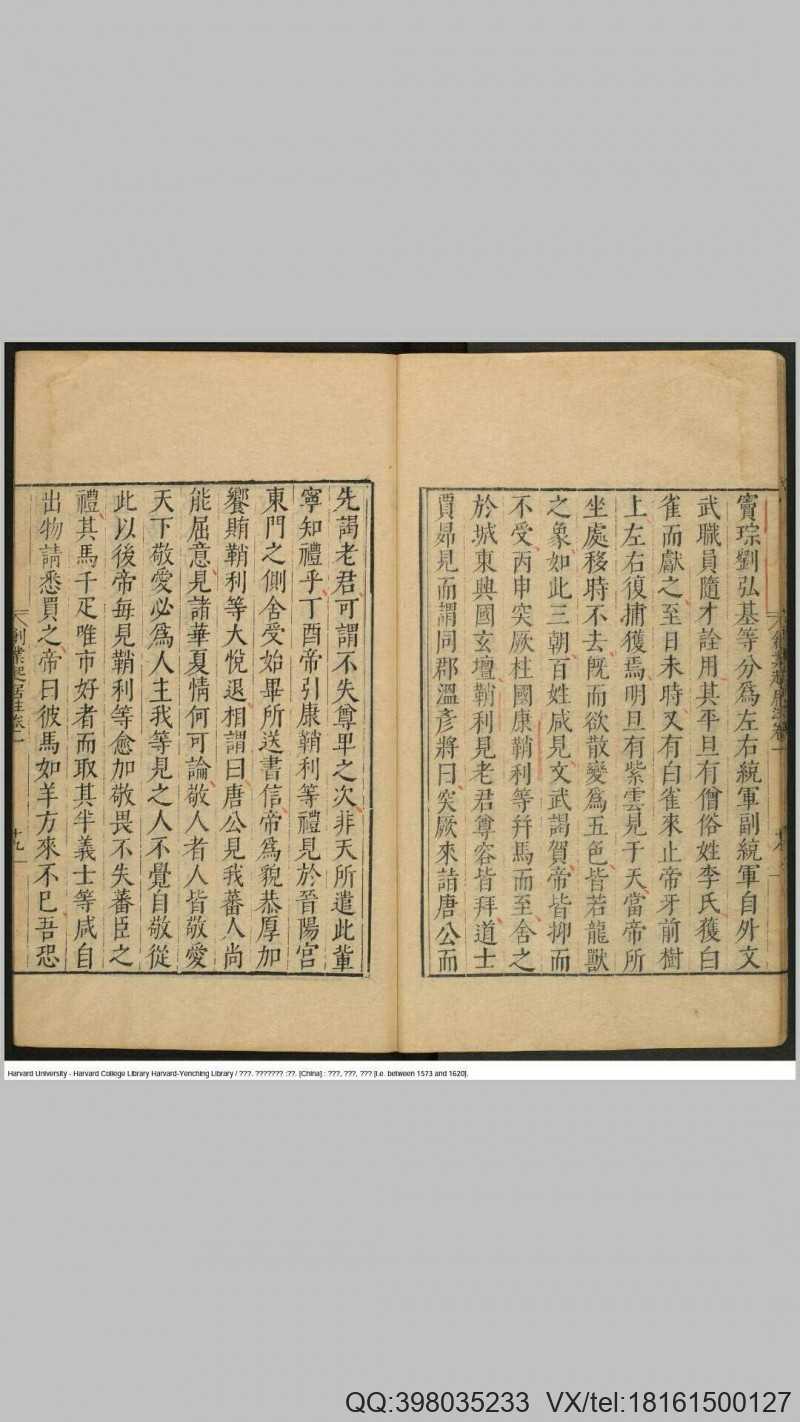 竇琮劉弘基等分爲左右統軍副統軍自外文
武職員隨才詮用其平旦有僧俗姓李氏獲白
雀而獻之至日未時又有白雀來止帝牙前樹
上左右復捕獲焉明旦有紫雲見于天當帝所
坐處移時不去既而欲散變爲五色皆若龍獸
之象如此三朝百姓咸見文武謁賀帝皆抑而
不受丙申突厥柱國康鞘利等并馬而至舍之
於城東興國玄壇鞘利見老君尊容皆拜道士
賈昴見而謂同郡溫彥將曰突厥來詣唐公而
先謁老君可謂不失尊卑之次非天所遣此輩
寧知禮乎丁酉帝引康鞘利等禮見於晉陽宮
東門之側舍受始畢所送書信帝爲貌恭厚加
饗賄鞘利等大悅退相謂曰唐公見我蕃人尚
能屈意見諸華夏情何可論敬人者人皆敬愛
天下敬愛必爲人主我等見之人不覺自敬從
此以後帝每見鞘利等愈加敬畏不失蕃臣之
禮其馬千疋唯市好者而取其半義士等咸自
出物請悉買之帝曰彼馬如羊方來不已吾恐
創業起居注卷二
十九
Harvard University - Harvard College Library Harvard-Yenching Library / ???. ??????? :??. [China] : ???, ???, ??? [i.e. between 1573 and 1620].
QQ:398035233 VX/tel:18161500127